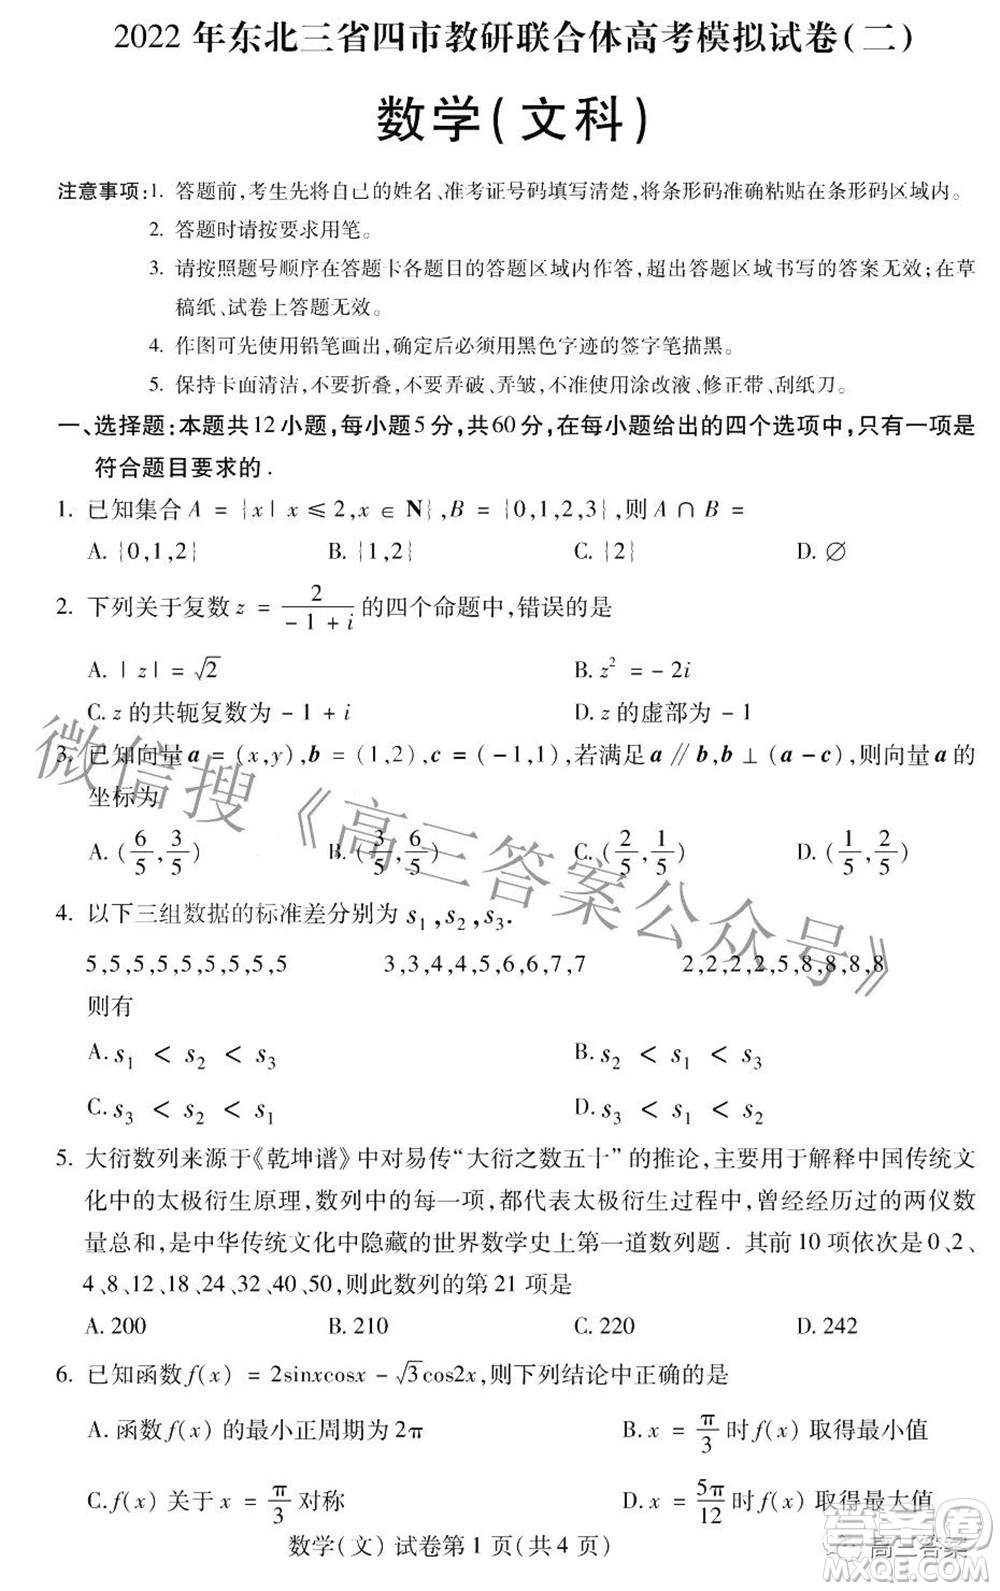 2022 年东北三省四市教研联合体高考模拟试卷(二)
数学(文科)
注意事项:1. 答题前,考生先将自己的姓名、准考证号码填写清楚,将条形码准确粘贴在条形码区域内。
2. 答题时请按要求用笔。
3. 请按照题号顺序在答题卡各题目的答题区域内作答,超出答题区域书写的答案无效;在草
稿纸、试卷上答题无效。
4. 作图可先使用铅笔画出,确定后必须用黑色字迹的签字笔描黑。
5. 保持卡面清洁,不要折叠,不要弄破、弄皱,不准使用涂改液、修正带、刮纸刀。
一、选择题:本题共12小题,每小题5分,共60分,在每小题给出的四个选项中,只有一项是
符合题目要求的.
1. 已知集合 A = {x | x ≤ 2, x ∈ N}, B = {0,1,2,3}, 则 A ∩ B =
A. {0,1,2} B. {1,2} C. {2} D. ∅
2. 下列关于复数 z = 2/(-1+i) 的四个命题中,错误的是
A. |z| = √2 B. z² = -2i
C. z 的共轭复数为 -1 + i D. z 的虚部为 -1
3. 已知向量 a = (x,y), b = (1,2), c = (-1,1), 若满足 a ∥ b, b ⊥ (a - c), 则向量 a 的
坐标为
A. (6/5, 3/5) B. (3/5, 6/5) C. (2/5, 1/5) D. (1/5, 2/5)
4. 以下三组数据的标准差分别为 s₁, s₂, s₃.
5,5,5,5,5,5,5,5,5 3,3,4,4,5,6,6,7,7 2,2,2,2,5,8,8,8,8
则有
A. s₁ < s₂ < s₃ B. s₂ < s₁ < s₃
C. s₃ < s₂ < s₁ D. s₃ < s₁ < s₂
5. 大衍数列来源于《乾坤谱》中对易传“大衍之数五十”的推论,主要用于解释中国传统文
化中的太极衍生原理,数列中的每一项,都代表太极衍生过程中,曾经经历过的两仪数
量总和,是中华传统文化中隐藏的世界数学史上第一道数列题. 其前 10 项依次是 0、2、
4、8、12、18、24、32、40、50,则此数列的第 21 项是
A. 200 B. 210 C. 220 D. 242
6. 已知函数 f(x) = 2sinxcosx - √3cos2x, 则下列结论中正确的是
A. 函数 f(x) 的最小正周期为 2π B. x = π/3 时 f(x) 取得最小值
C. f(x) 关于 x = π/3 对称 D. x = 5π/12 时 f(x) 取得最大值
数学(文)试卷第 1 页(共 4 页)
微信搜《高三答案公众号》
高三答案
答案圈
MXQE.COM